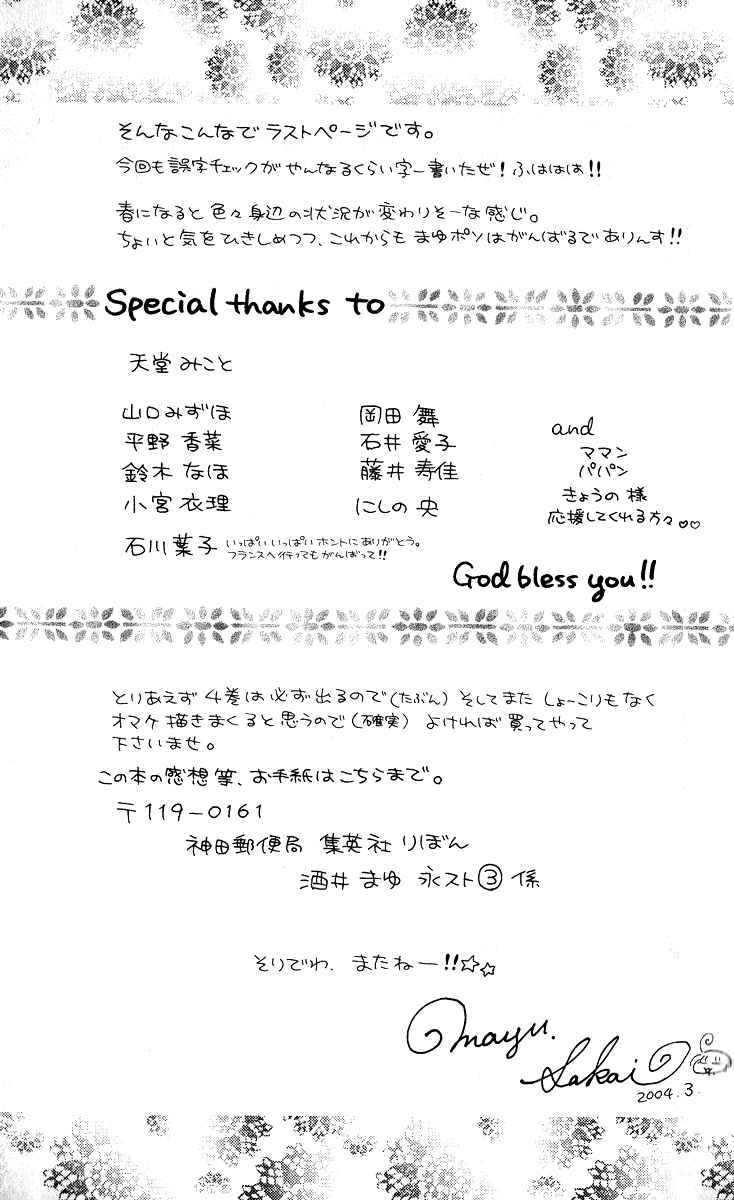 そんなこんなで ラストページです。
今回も誤字チェックが やんなるくらい字ー書いたぜ！ふははは!!
春になると 色々身辺の状況が変わりそーな感じ。
ちょいと気をひきしめつつ、これからも まゆポンはがんばるでありんす!!
Special thanks to
天堂 みこと
山口みずほ
平野 香菜
鈴木 なほ
小宮 衣理
石川葉子 いっぱいいっぱいホントにありがとう。
フランスへ行ってもがんばって!!
岡田 舞
石井 愛子
藤井 寿佳
にしの 央
and
ママン
パパン
きょうの 様
応援してくれる方々♡♡
God bless you!!
とりあえず 4巻は必ず出るので(たぶん) そしてまた しょーこりもなく
オマケ描きまくると思うので(確実) よければ買ってやって
下さいませ。
この本の感想等、お手紙はこちらまで。
〒119-0161
神田郵便局 集英社 りぼん
酒井 まゆ 永スト③係
そりでわ、またねー!!☆☆
Mayu.
Sakai
2004.3.